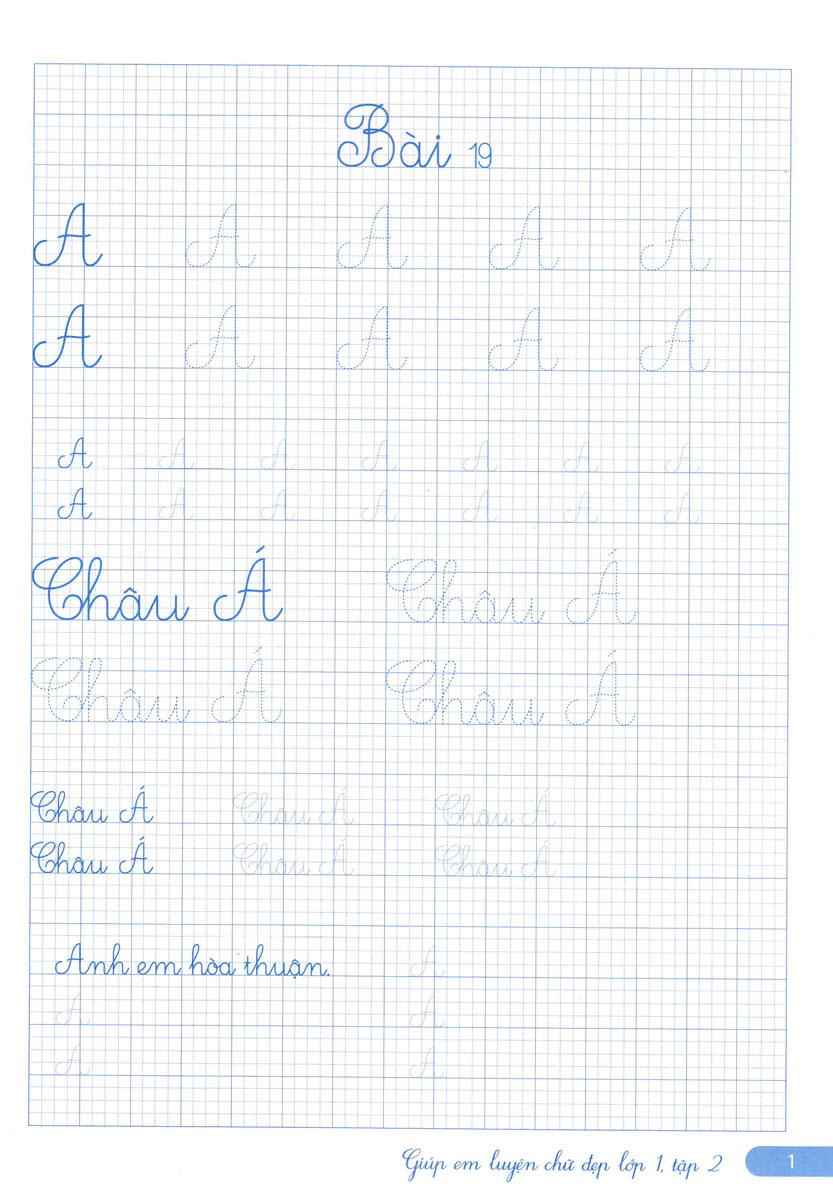 Bài 19
A A A A A
A A A A A
A A A A A A A
A A A A A A A
Châu Á Châu Á
Châu Á Châu Á
Châu Á Châu Á Châu Á
Châu Á Châu Á Châu Á
Anh em hòa thuận. A
A A
A A
Giúp em luyện chữ đẹp lớp 1, tập 2 1